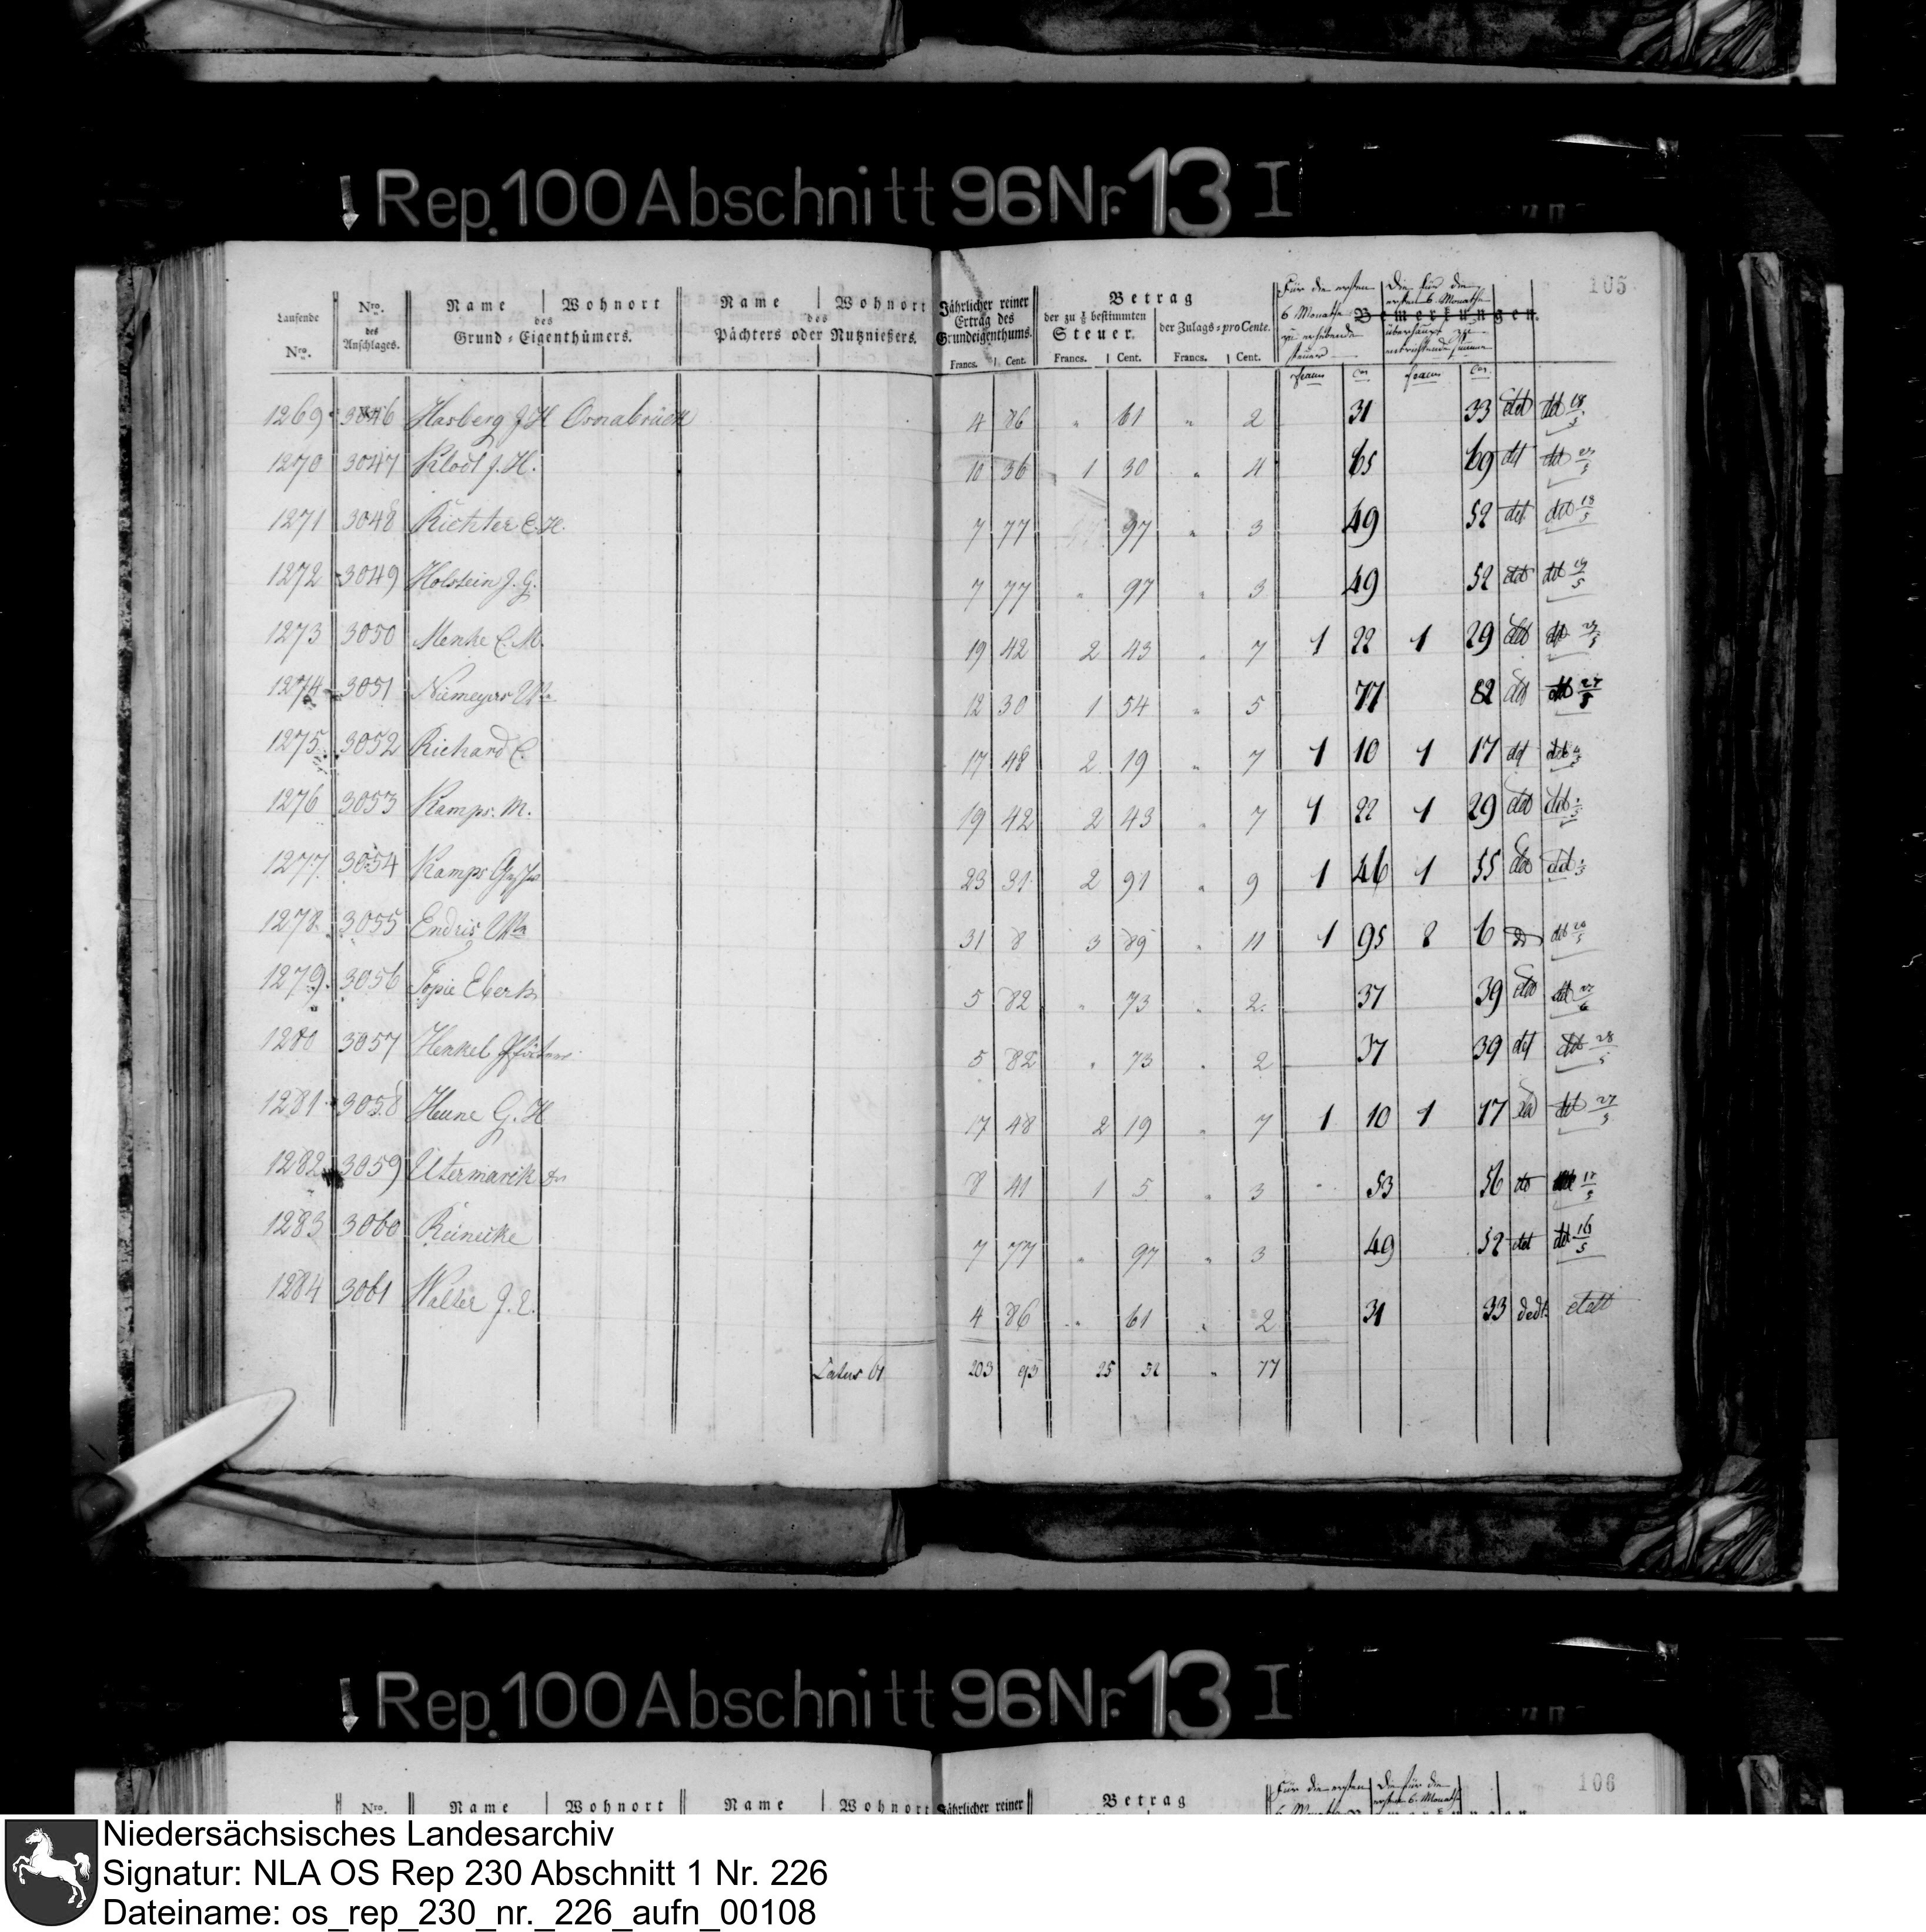 Rep. 100 Abschnitt 96 Nr. 13 I
105
Laufende Nro. | Nro. des Anschlages. | Name Wohnort des Grund-Eigenthümers. | Name Wohnort des Pächters oder Nutznießers. | Jährlicher reiner Ertrag des Grundeigenthums. | Betrag der zu 1/8 bestimmten Steuer. | der Zulags-pro Cente. | Für die ersten 6 Monathe zu erhebende Steuer | Die für die ersten 6 Monathe überhaupt zu entrichtende Summe | Bemerkungen.
Francs. Cent. Francs. Cent. Francs. Cent.
1269 3046 Hasberg J H Osnabrück 4 86 " 61 " 2 31 33 ddt ddt 18/5
1270 3047 J. H. 10 36 1 30 " 4 65 69 ddt ddt
1271 3048 Richter C. H. 7 77 97 " 3 49 52 ddt ddt 18/5
1272 3049 Holstein J. G. 7 77 " 97 " 3 49 52 ddt ddt 19/5
1273 3050 Menke C. M. 19 42 2 43 " 7 1 22 1 29 ddt ddt
1274 3051 Niemeyer Ww 12 30 1 54 " 5 77 82 ddt ddt 27/5
1275 3052 Richard C. 17 48 2 19 " 7 1 10 1 17 ddt ddt
1276 3053 Kamps. M. 19 42 2 43 " 7 1 22 1 29 ddt ddt
1277 3054 Kamps 23 31 2 91 " 9 1 46 1 55 ddt ddt
1278 3055 Endris Ww 31 8 3 89 " 11 1 95 2 6 ddt 20/5
1279 3056 Topie Eberh 5 82 " 73 " 2 37 39 ddt ddt
1280 3057 Henkel 5 82 " 73 " 2 37 39 ddt ddt 28/5
1281 3058 Heune G. H 17 48 2 19 " 7 1 10 1 17 ddt ddt 27/5
1282 3059 Utermarck Dr 8 41 1 5 " 3 53 56 ddt 18/5
1283 3060 Reinecke 7 77 " 97 " 3 49 52 ddt ddt 16/5
1284 3061 Walter J. E. 4 86 " 61 " 2 31 33 dedt
Latus 61 203 93 25 52 " 77
Rep. 100 Abschnitt 96 Nr. 13 I
106
Nro. Name Wohnort Name Wohnort Jährlicher reiner Betrag Für die ersten Die für die
Niedersächsisches Landesarchiv
Signatur: NLA OS Rep 230 Abschnitt 1 Nr. 226
Dateiname: os_rep_230_nr._226_aufn_00108